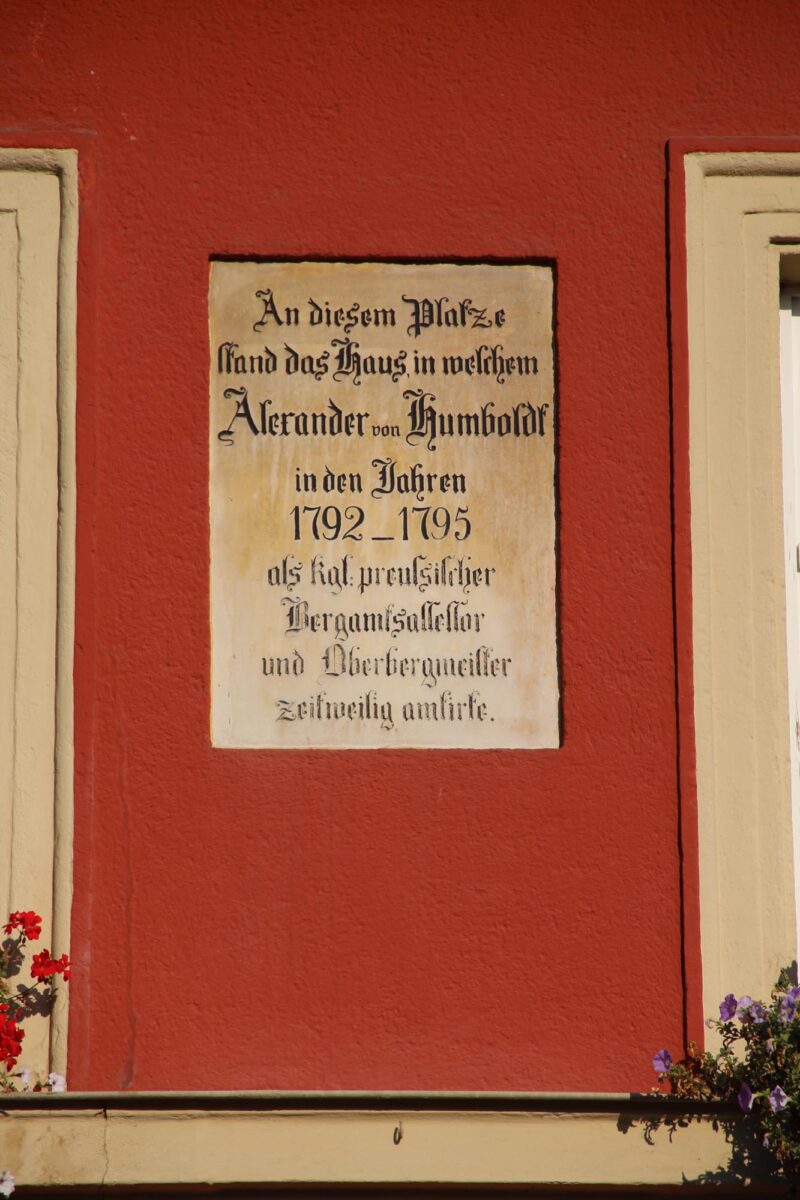 An diesem Platze
stand das Haus, in welchem
Alexander von Humboldt
in den Jahren
1792–1795
als kgl. preussischer
Bergamtsassessor
und Oberbergmeister
zeitweilig amtirte.